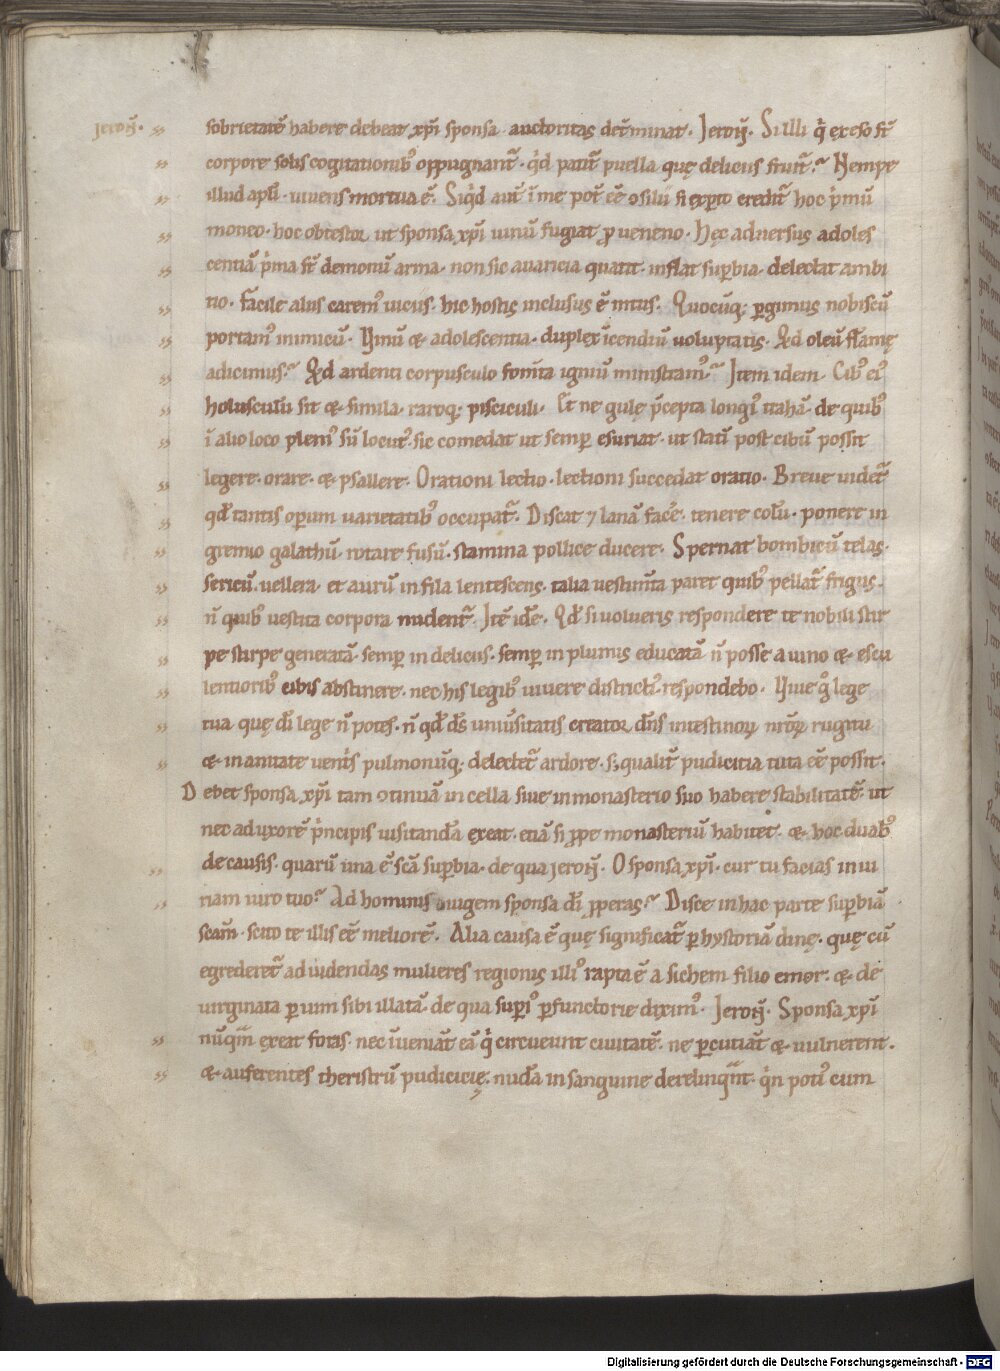 jeroñ.
sobrietatē habere debeat xp̄i sponsa auctoritas det̄minat. Jeroñ. Si illi q̇ exeso st̄
corpore solis cogitationib᷒ oppugnant᷑. qd̓ patit᷑ puella quę deliciis fruit᷑. Nempe
illud apłi. uiuens mortua ē. Siqd̓ aut̄ ī me pot̄ ēē ↄsilii si exꝑto credit᷑ hoc p̓mū
moneo. hoc obtestor ut sponsa xp̄i uinū fugiat ꝓ ueneno. Hęc aduersus adoles
centiā p̓ma st̄ demonū arma. non sic auaricia quatit. inflat suꝑbia. delectat ambi
tio. facile aliis carem᷒ uiciis. hic hostis inclusus ē intus. Quocūq; ꝑgimus nobiscū
portam᷒ inimicū. Vinū & adolescentia. duplex īcendiū uoluptatis. Qd̓ oleū flamę
adicimus. Qd̓ ardenti corpusculo fom̄ta igniū ministram᷒. Item idem. Cib᷒ ei᷒
holusculū sit & simila. raroq; pisciculi. Et ne gulę p̄cepta longi᷒ trahā. de quib᷒
ī alio loco pleni᷒ sū locut᷒. sic comedat ut semꝑ esuriat. ut statī post cibū possit
legere. orare. & psallere. Orationi lectio. lectioni succedat oratio. Breue uidet᷑
qd̓ tantis operum uarietatib᷒ occupat᷑. Discat ⁊ lanā fac̄e. tenere colū. ponere in
gremio galathū. rotare fusū. stamina pollice ducere. Spernat bombicū telas.
sericū. uellera. et aurū in fila lentescens. talia uestim̄ta paret quib᷒ pellat᷑ frigus.
n̄ quib᷒ uestita corpora nudent᷑. Itē idē. Qd̓ si uolueris respondere te nobili stir
pe stirpe generatā. semꝑ in deliciis. semꝑ in plumis educatā n̄ posse a uino & escu
lentiorib᷒ cibis abstinere. nec his legib᷒ uiuere districti᷒. respondebo. Viue g̊ lege
tua quę dī lege n̄ potes. n̄ qd̓ d̄s uniũsitatis creator dn̄s intestinoꝝ nr̄oꝝ rugitu
& inanitate uent̓s pulmonūq; delectet᷑ ardore. s; qualit᷑ pudicitia tuta ēē possit.
Debet sponsa xp̄i tam ↄtinuā in cella siue in monasterio suo habere stabilitatē. ut
nec ad uxorē p̓ncipis uisitandā exeat. etiā si ꝓpe monasteriū habitet. & hoc duab᷒
de causis. quarū una ē sc̄a suꝑbia. de qua jeroñ. O sponsa xp̄i. cur tu facias iniu
riam uiro tuo? Ad hominis ↄiugem sponsa dī ꝓperas? Disce in hac parte suꝑbiā
sc̄am. scito te illis ēē meliorē. Alia causa ē quę significat᷑ ꝑ hystoriā dinę. quę cū
egrederet᷑ ad uidendas mulieres regionis illi᷒ rapta ē a sichem filio emor. & de
uirginata ꝑ uim sibi illatā. de qua supi᷒ ꝑfunctorie dixim᷒. Jeroñ. Sponsa xp̄i
nūqm̄ exeat foras. nec īueniāt eā q̇ circueunt ciuitatē. ne ꝑcutiāt & uulnerent.
& auferentes theristrū pudicicię. nudā in sanguine derelinqᷓnt. q̓n poti᷒ cum